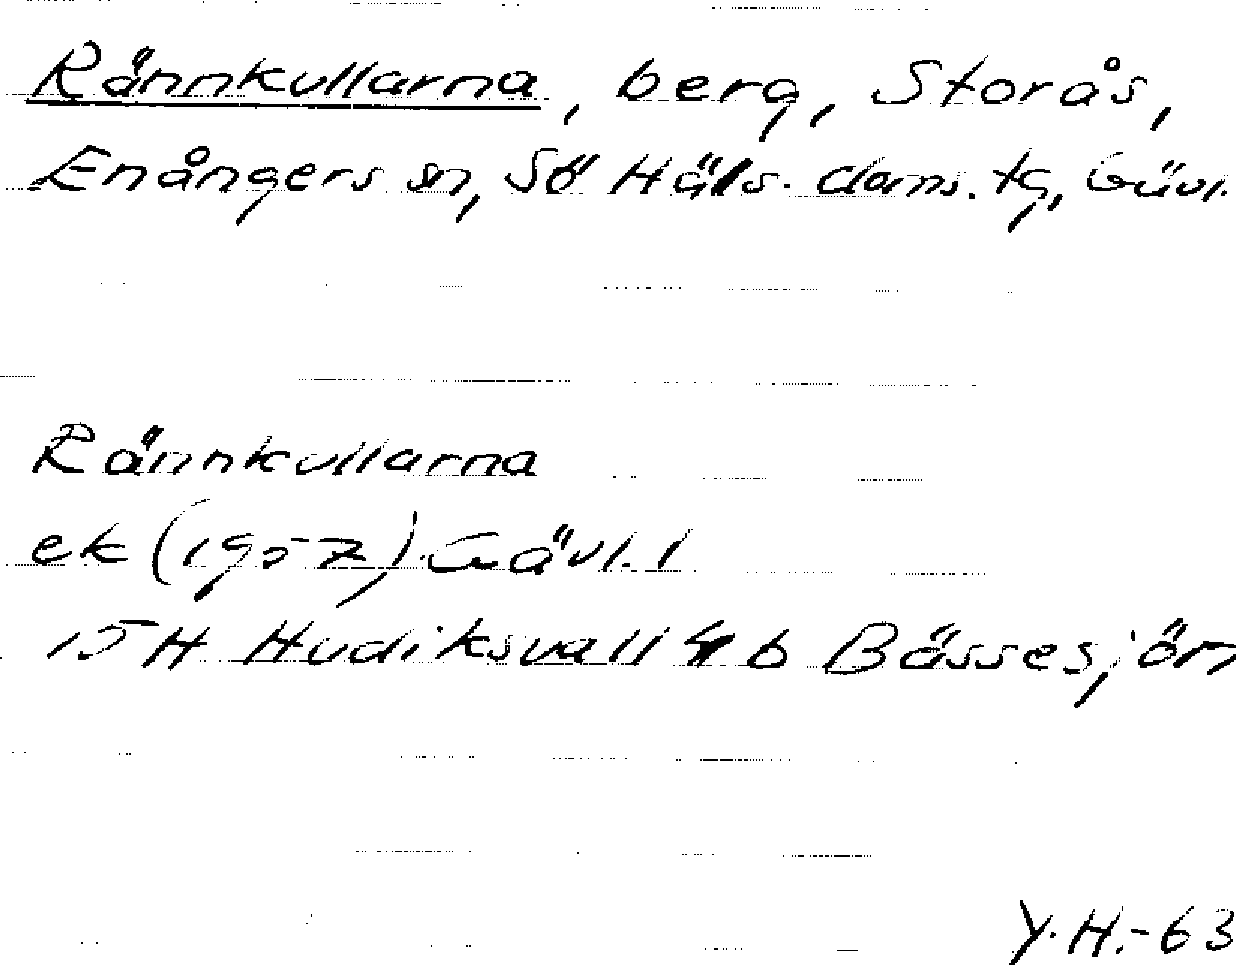 Rännkullarna, berg, Storås,
Enångers sn, Sö Häls. doms. tg, Gävl.
Rännkullarna
ek (1957) Gävl. l
15H Hudiksvall 4b Bässesjön
Y.H.-63